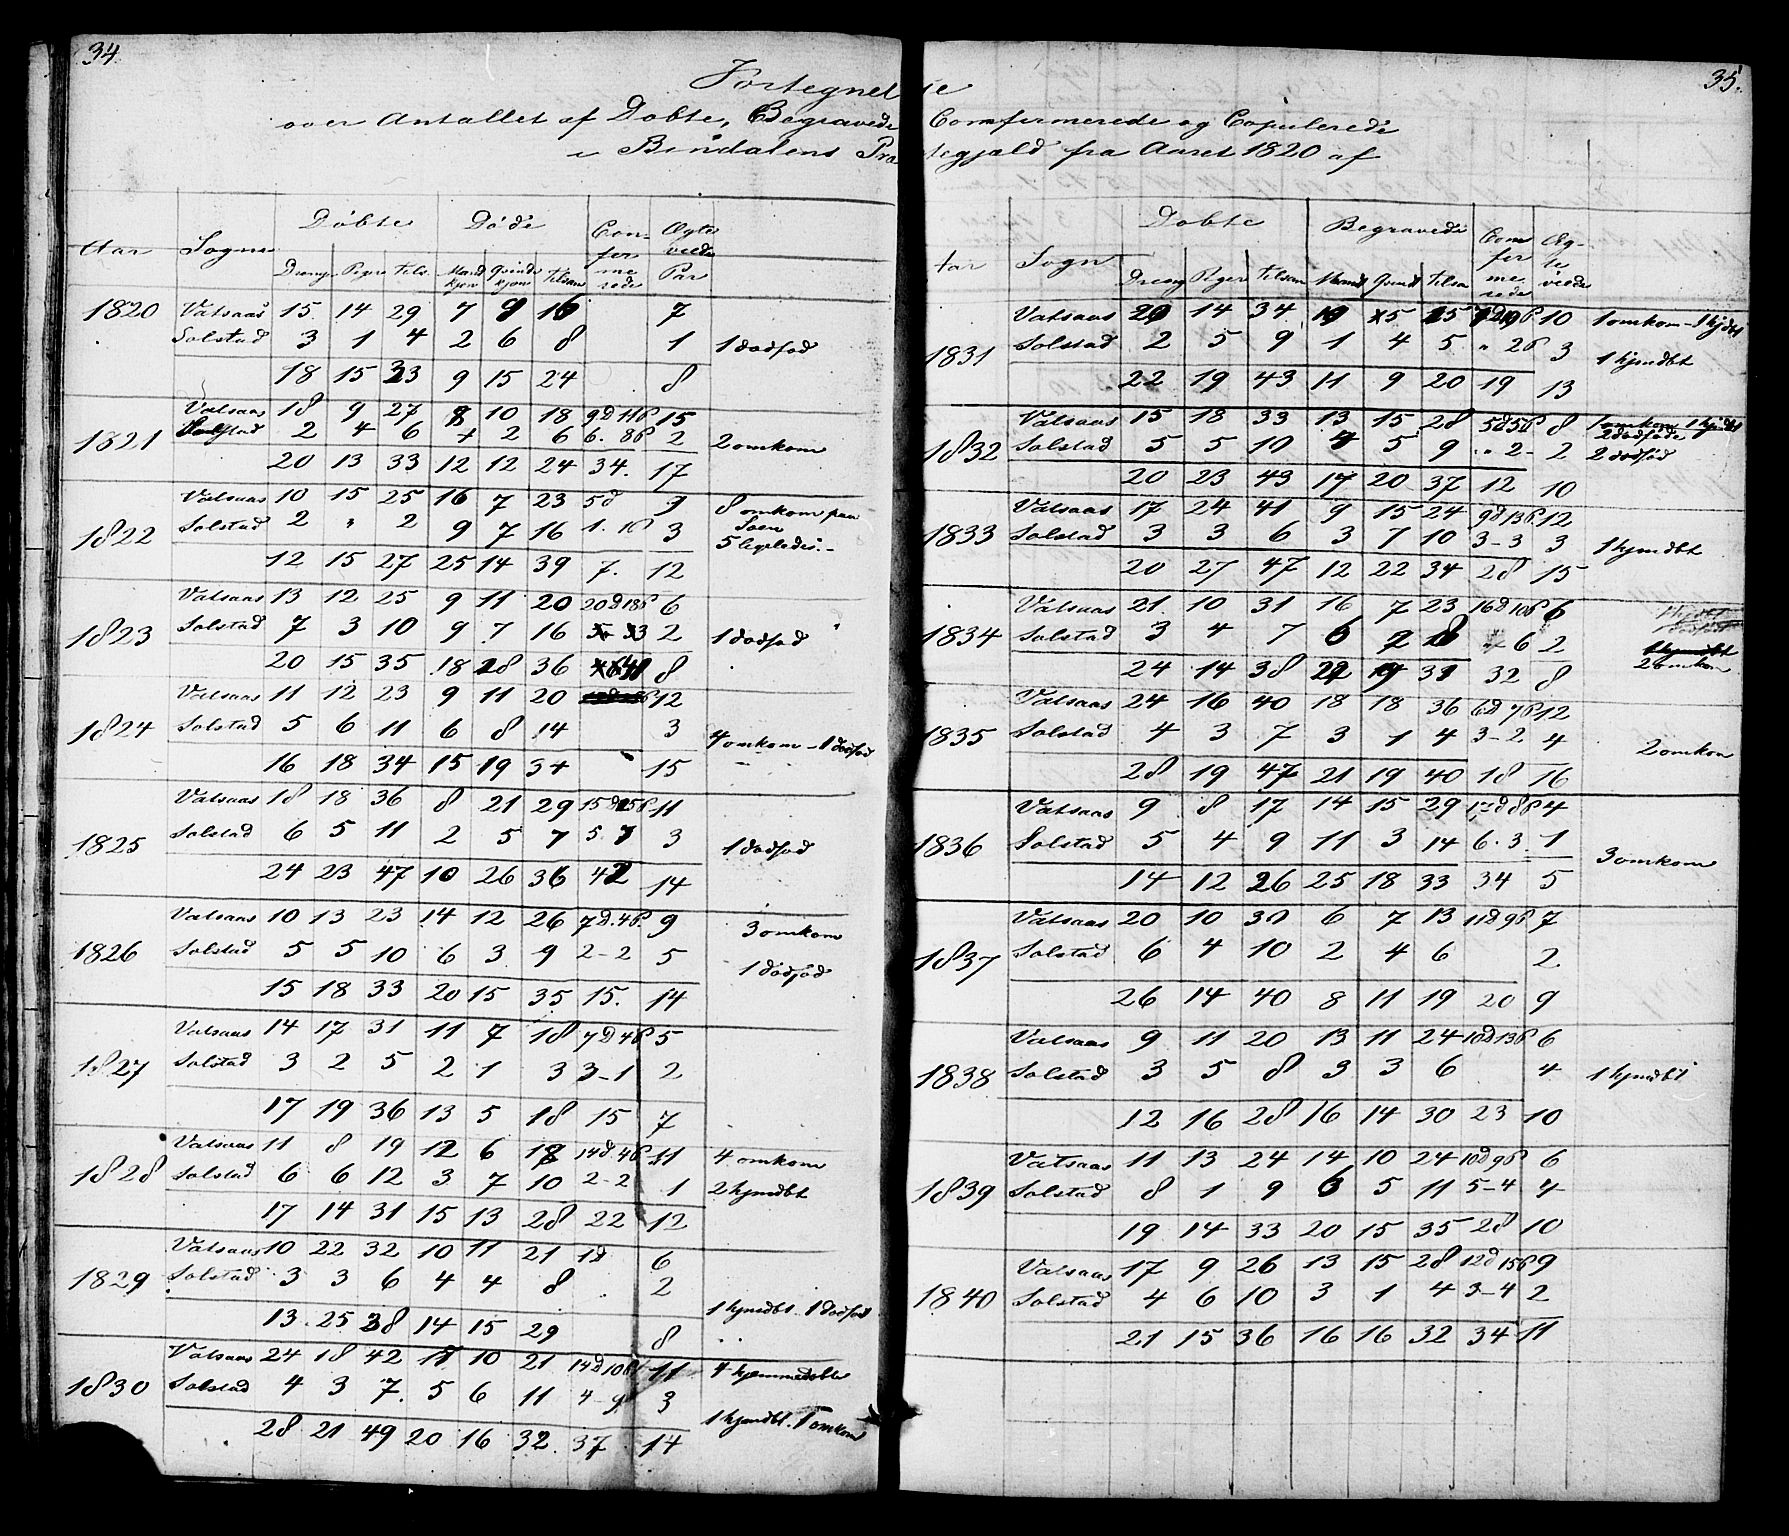 34.
Fortegnel
over Antallet af Døbte, Begravede
i Bindalens Præ
Aar Sogne Døbte Døde Con-fer-me-rede Ægte viede Par
Dreng Piger Tils. Mand kjøn Qvinde kjøn Tilsam
1820 Vatsaas 15. 14 29 7 9 16 7
Solstad 3 1 4 2 6 8 1 1 dødfød
18 15 33 9 15 24 8
1821 Vatsaas 18 9 27 8 10 18 9d 11p 15
Solstad 2 4 6 4 2 6 6. 8p 2 2 omkom
20 13 33 12 12 24 34. 17
1822 Vatsaas 10 15 25 16 7 23 5d 9 8 omkom paa
Solstad 2 " 2 9 7 16 1. 1p 3 Søen
12 15 27 25 14 39 7. 12
1823 Vatsaas 13 12 25 9 11 20 20d 18p 6
Solstad 7 3 10 9 7 16 2 1 dødfød
20 15 35 18 18 36 8
1824 Vatsaas 11 12 23 9 11 20 12
Solstad 5 6 11 6 8 14 3 4 omkom - 1 dødfød
16 18 34 15 19 34 15
1825 Vatsaas 18 18 36 8 21 29 15d 15p 11
Solstad 6 5 11 2 5 7 5. 7 3 1 dødfød
24 23 47 10 26 36 42 14
1826 Vatsaas 10 13 23 14 12 26 7d. 4p. 9 3 omkom
Solstad 5 5 10 6 3 9 2-2 5 1 dødfød
15 18 33 20 15 35 15. 14
1827 Vatsaas 14 17 31 11 7 18 7d 4p 5
Solstad 3 2 5 2 1 3 3-1 2
17 19 36 13 5 18 15 7
1828 Vatsaas 11 8 19 12 6 18 14d 4p 11 4 omkom
Solstad 6 6 12 3 7 10 2-2 1 2 hjmdbt
17 14 31 15 13 28 22 12
1829 Vatsaas 10 22 32 10 11 21 1d 6
Solstad 3 3 6 4 4 8 2
13 25 38 14 15 29 8 1 hjmdbt. 1 dødfød
1830 Vatsaas 24 18 42 11 10 21 14d 10p 11 4 hjemmedøbte
Solstad 4 3 7. 5 6 11 4-9 3
28 21 49 20 16 32. 37 14 1 hjmdbt. 1 omkom
35.
se
Comfermerede og Copulerede
stegjæld fra Aaret 1820 af
Aar Sogn Døbte Begravede Com fer me rede Æg-te viede
Dreng Piger Tilsam Mand Qvind Tilsa
1831 Vatsaas 20 14 34 10 5 15 10 1 omkom - 1 hjdbt
Solstad 2 5 9 1 4 5 " 2p 3 1 hjmdbt
22 19 43 11 9 20 19 13
1832 Vatsaas 15 18 33 13 15 28 5d 5p 8
Solstad 5 5 10 4 5 9 " 2- 2 2 dødfød
20 23 43 17 20 37 12 10
1833 Vatsaas 17 24 41 9 15 24 9d 13p 12
Solstad 3 3 6 3 7 10 3-3 3 1 hjmdbt
20 27 47 12 22 34 28 15
1834 Vatsaas 21. 10 31 16 7 23 16d 10p 6
Solstad 3 4 7 6 2 8 6 2 1 hjmdbt
24 14 38 22 9 31 32 8 2 omkom
1835 Vatsaas 24 16 40 18 18 36 6d 7p 12
Solstad 4 3 7 3 1 4 3-2 4 2 omkom
28 19 47 21 19 40 18 16
1836 Vatsaas 9 8 17 14 15 29 17d 8p 4
Solstad 5 4 9 11 3 14 6. 3. 1 3 omkom
14 12 26 25 18 33 34 5
1837 Vatsaas 20 10 30 6 7 13 11d 9p 7
Solstad 6 4 10 2 4 6 2
26 14 40 8 11 19 20 9
1838 Vatsaas 9 11 20 13 11 24 10d 13p 6
Solstad 3 5 8 3 3 6 4 1 hjmdbt
12 16 28 16 14 30 23 10
1839 Vatsaas 11 13 24 14 10 24 10d 9p 6
Solstad 8 1 9 6 5 11 5-4 4
19 14 33 20 15 35 28 10
1840 Vatsaas 17 9 26 13 15 28 12d 15p 9
Solstad 4 6 10 3 1 4 3-4 2
21 15 36 16 16 32 34 11